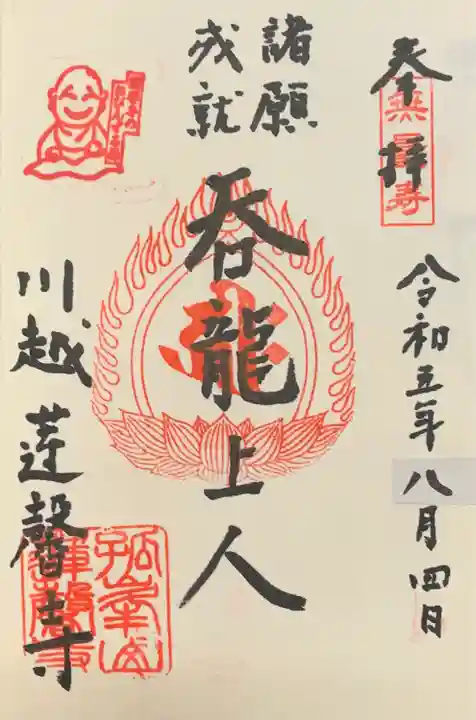 奉拝
無量寿
令和五年八月四日
諸願
成就
呑龍上人
川越 蓮馨寺
孤峯山
蓮馨寺